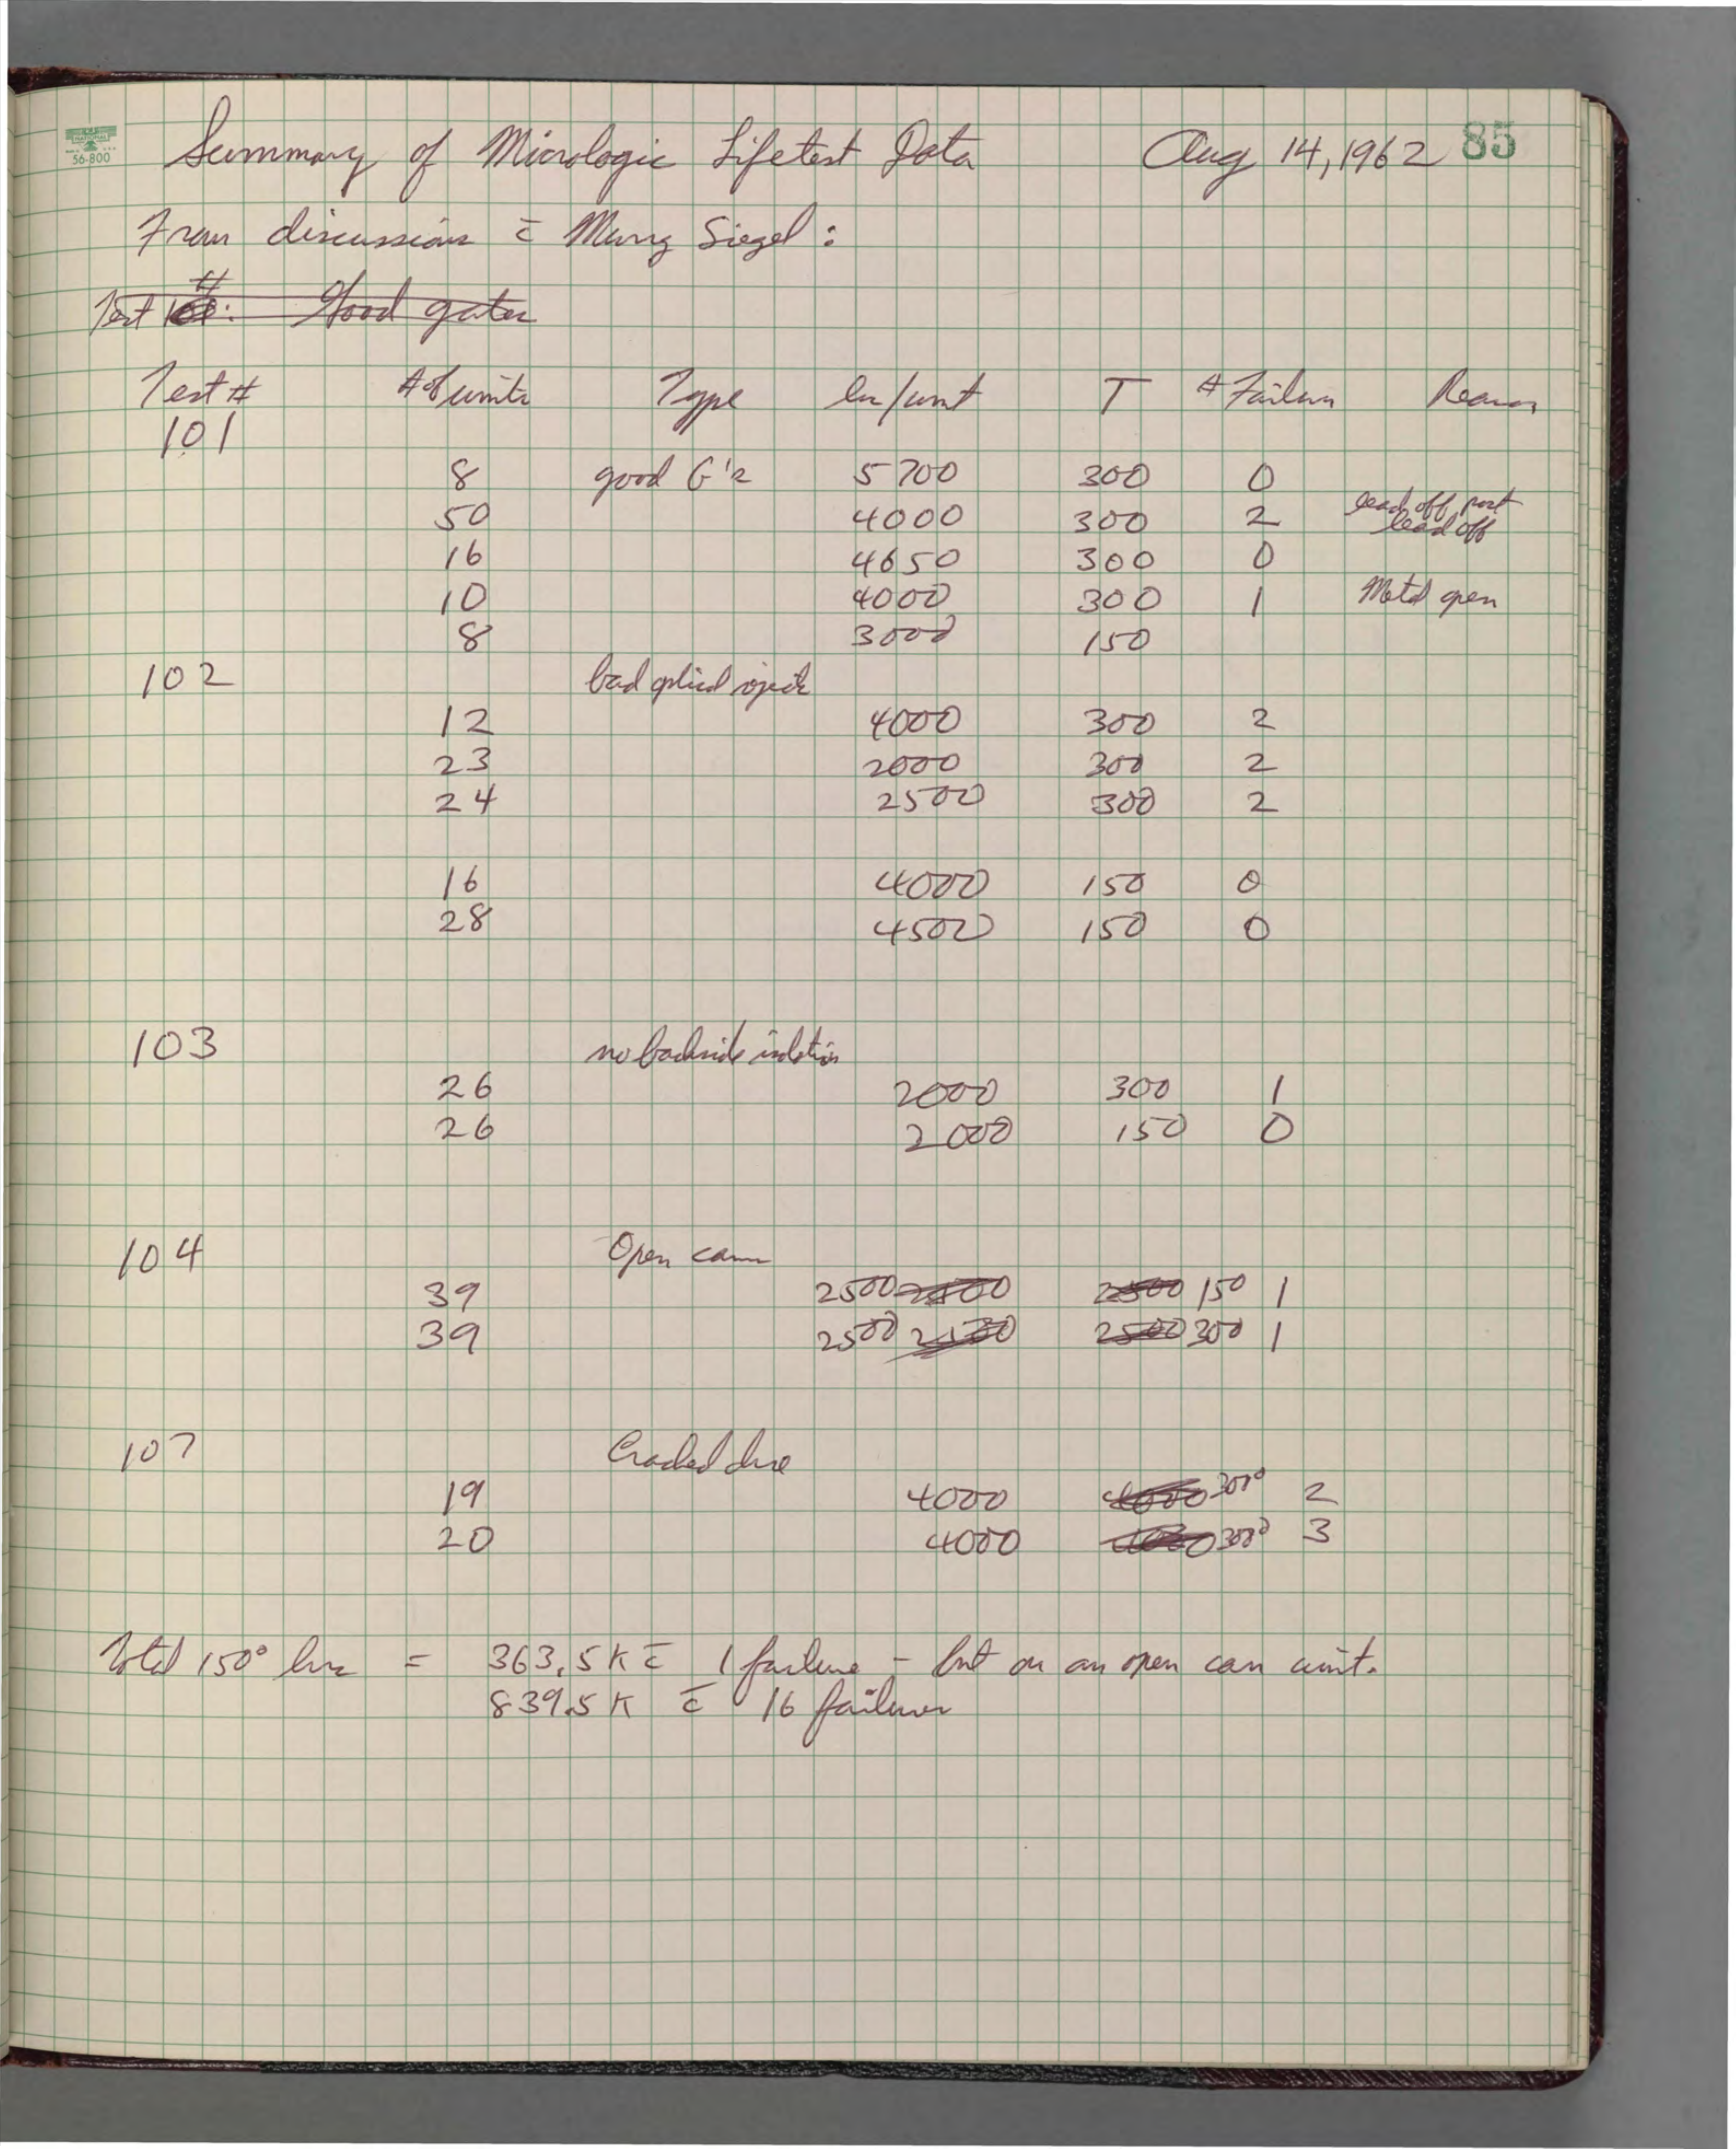 NATIONAL
56-800
Summary of Micrologic Lifetest Data Aug 14, 1962 85
From discussion c̄ Murry Siegel:
Test #: Good gates
Test # # of units Type hr/unit T # Failures Reason
101
8 good G's 5700 300 0
50 4000 300 2 lead off post
lead off
16 4650 300 0
10 4000 300 1 Metal open
8 3000 150
102 bad optical rejects
12 4000 300 2
23 2000 300 2
24 2500 300 2
16 4000 150 0
28 4500 150 0
103 no backside isolation
26 2000 300 1
26 2000 150 0
104 Open cans
39 2500 2500 2500 150 1
39 2500 2500 2500 300 1
107 Cracked dice
19 4000 4000 300° 2
20 4000 4000 300° 3
Total 150° hrs = 363.5K c̄ 1 failure – but on an open can unit.
839.5K c̄ 16 failures